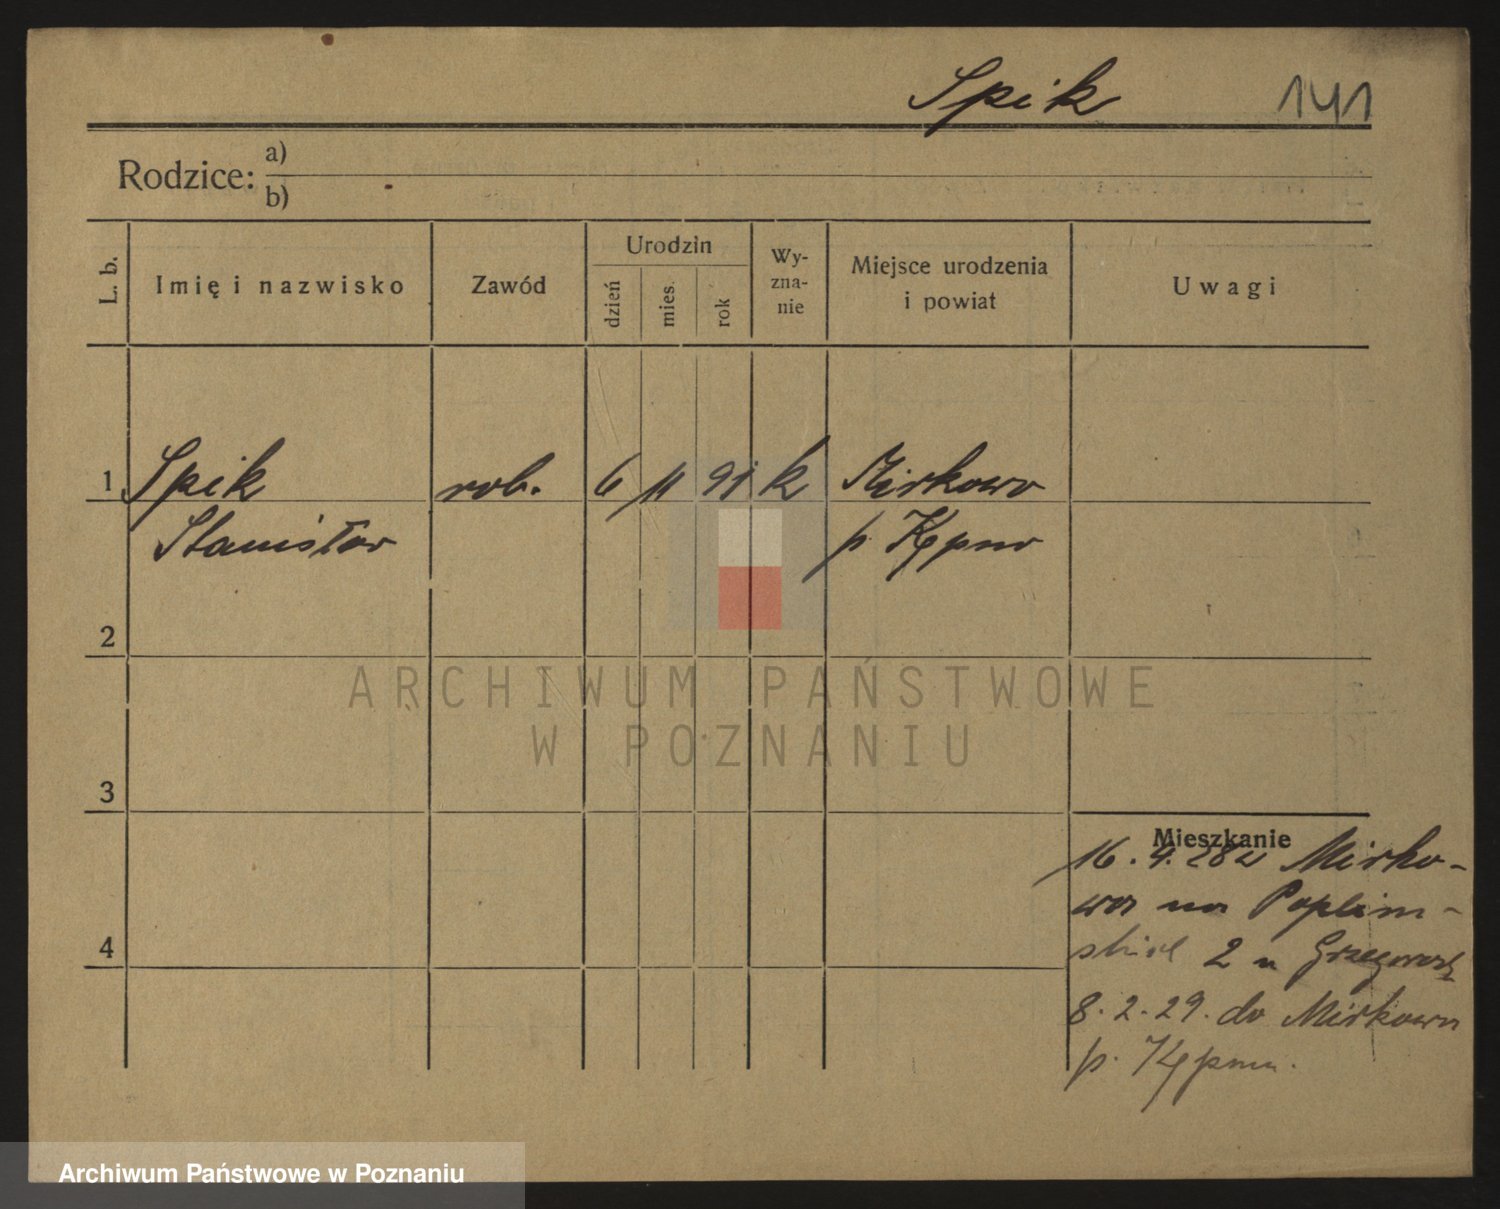 Spik 141
Rodzice: a)
b)
L. b. Imię i nazwisko Zawód Urodzin dzień mies. rok Wy-
zna-
nie Miejsce urodzenia
i powiat Uwagi
1 Spik rob. 6 11 91 k Mirkowo
Stanisław p. Kępno
2
3
4
Mieszkanie
16. 4. 28 z Mirko-
wa na
2 u
8. 2. 29. do Mirkowa
p. Kępno.
ARCHIWUM PAŃSTWOWE
W POZNANIU
Archiwum Państwowe w Poznaniu